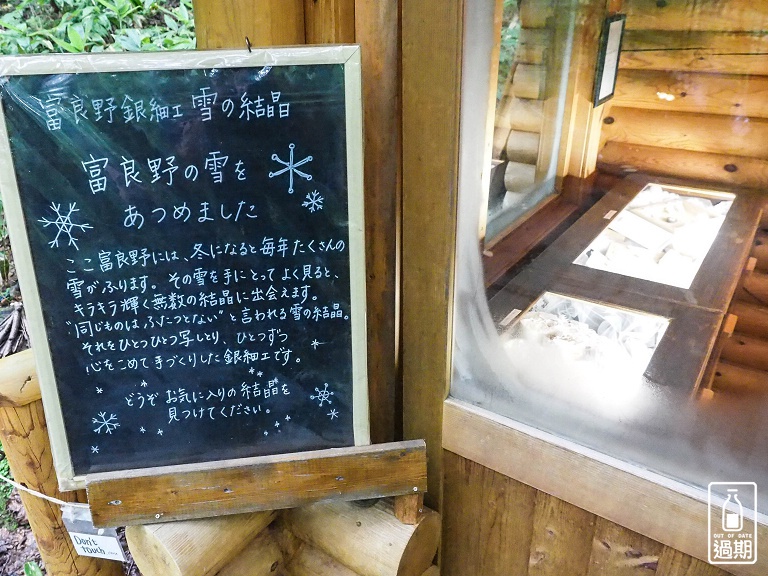 富良野銀細工 雪の結晶
富良野の雪を
あつめました
ここ富良野には、冬になると毎年たくさんの
雪がふります。その雪を手にとってよく見ると、
キラキラ輝く無数の結晶に出会えます。
"同じものはふたつとない"と言われる雪の結晶。
それをひとつひとつ写しとり、ひとつずつ
心をこめて手づくりした銀細工です。
どうぞお気に入りの結晶を
見つけてください。
Don't
touch
OUT OF DATE
過期